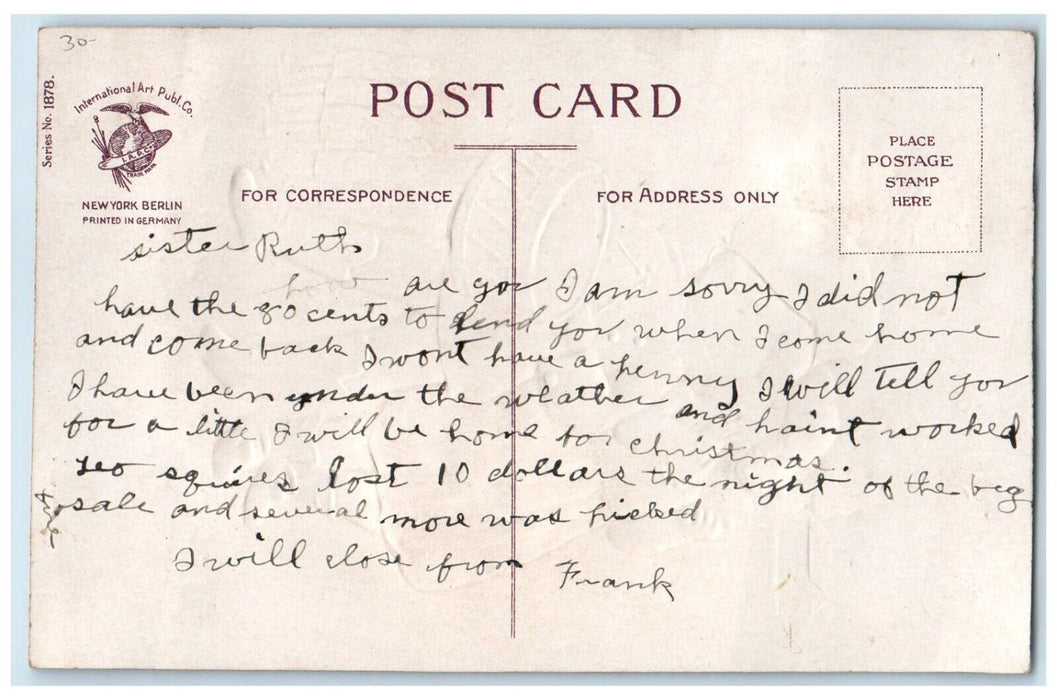 30-
Series No. 1878.
International Art Publ. Co.
I.A.P.Co.
TRADE MARK
NEW YORK BERLIN
PRINTED IN GERMANY
POST CARD
FOR CORRESPONDENCE
FOR ADDRESS ONLY
PLACE
POSTAGE
STAMP
HERE
sister Ruth
how are you I am sorry I did not
have the 30 cents to send you when I come home
and come back I wont have a penny I will tell you
I have been under the wheather and haint worked
for a little I will be home for christmas.
Leo squires lost 10 dollars the night of the big
sale and several more was picked
I will close from Frank